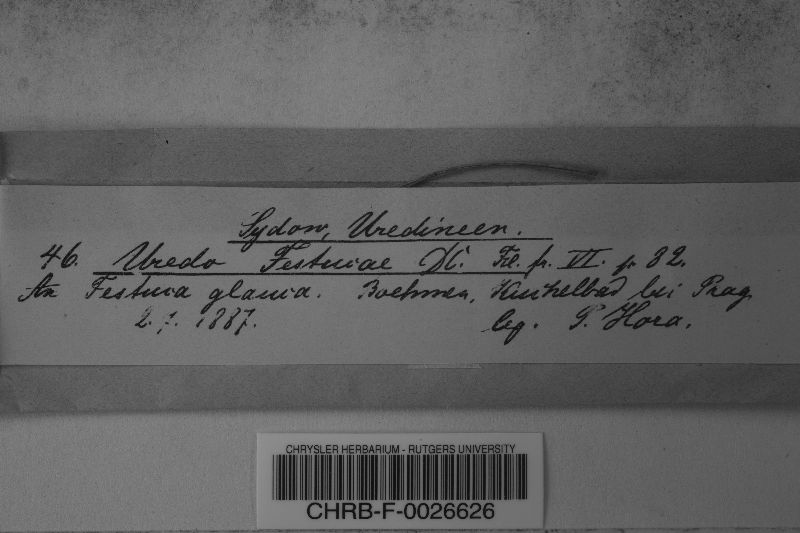 Sydow, Uredineen.
46. Uredo Festucae DC. Fl. fr. VI. p. 82.
An Festuca glauca. Boehmen, Kuchelbad bei Prag
2. 7. 1887. leg. P. Hora.
CHRYSLER HERBARIUM - RUTGERS UNIVERSITY
CHRB-F-0026626